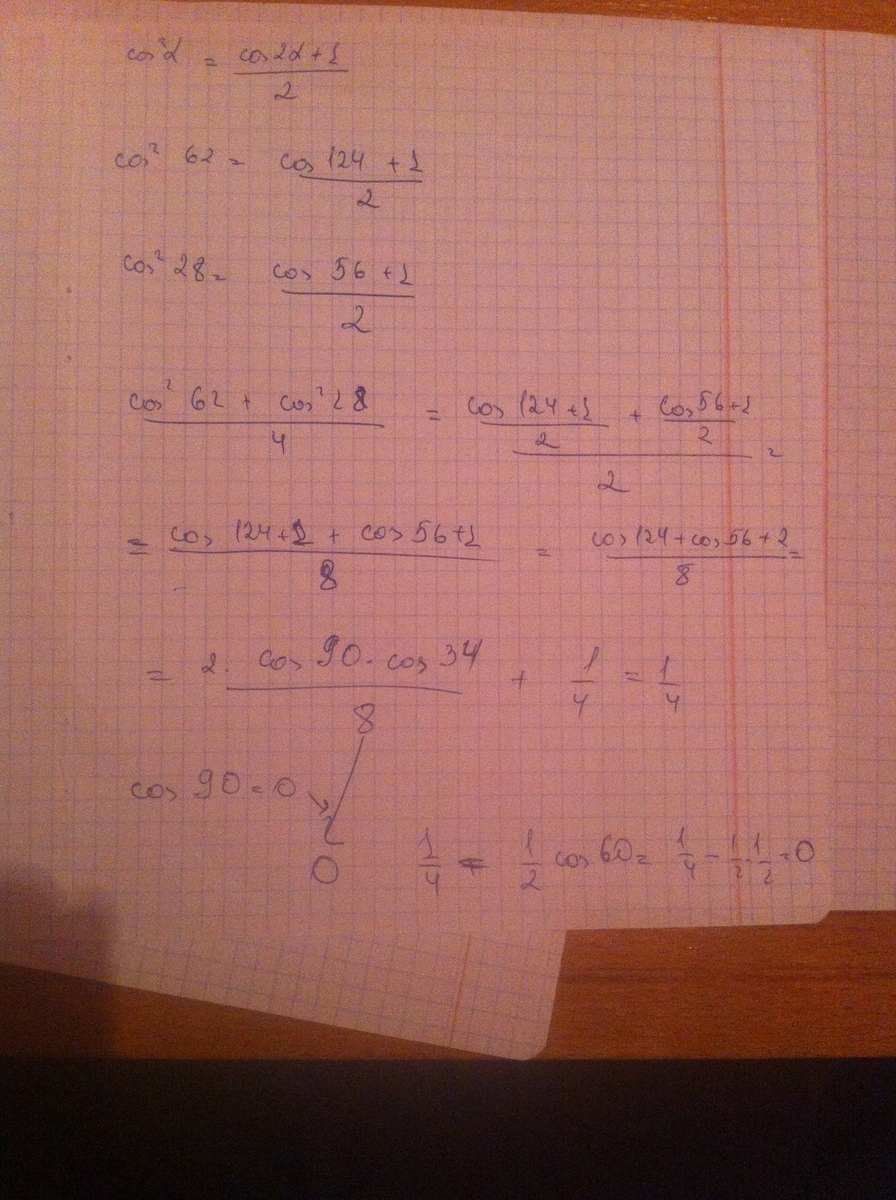 cos²α = (cos2α+1)/2
cos² 62 = (cos 124 + 1)/2
cos² 28 = (cos 56 + 1)/2
(cos² 62 + cos² 28)/4 = ((cos 124+1)/2 + (cos 56+1)/2)/2 =
= (cos 124+1 + cos 56+1)/8 = (cos124+cos 56+2)/8 =
= (2 · cos 90 · cos 34)/8 + 1/4 = 1/4
cos 90 = 0
0
1/4 - 1/2 cos 60 = 1/4 - 1/2 · 1/2 = 0